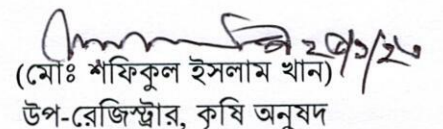 (মোঃ শফিকুল ইসলাম খান)
উপ-রেজিস্ট্রার, কৃষি অনুষদ